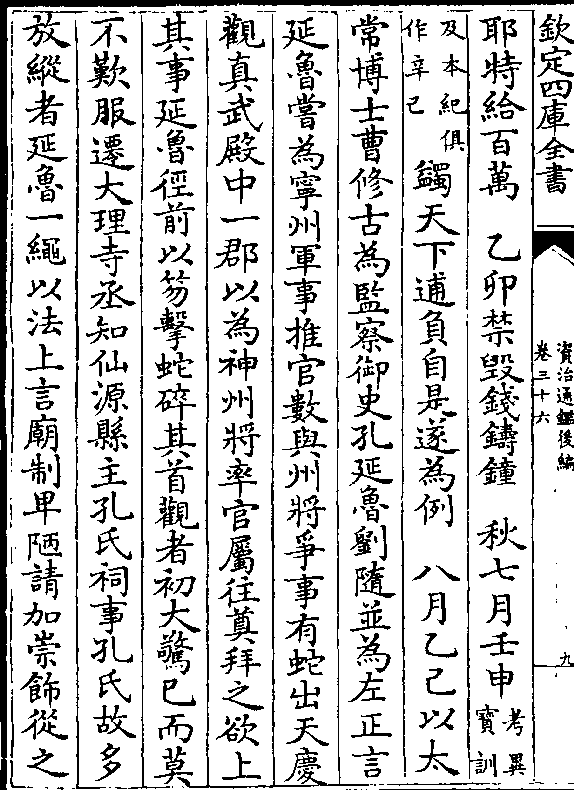 欽定四庫全書
資治通鑑後編
卷三十六
九
耶特給百萬　乙卯禁毀錢鑄鐘　秋七月壬申考異寶訓
及本紀俱作辛已蠲天下逋負自是遂為例　八月乙己以太
常博士曹修古為監察御史孔延魯劉隨並為左正言
延魯嘗為寧州軍事推官數與州將爭事有蛇出天慶
觀真武殿中一郡以為神州將率官屬往奠拜之欲上
其事延魯徑前以笏擊蛇碎其首觀者初大驚已而莫
不歎服遷大理寺丞知仙源縣主孔氏祠事孔氏故多
放縱者延魯一繩以法上言廟制卑陋請加崇飾從之